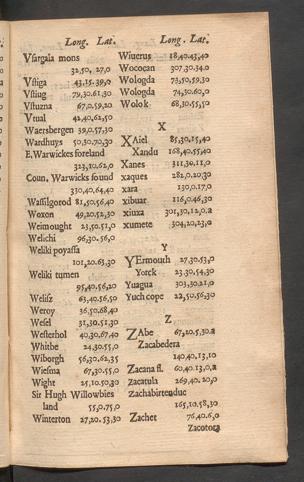 Long. Lat.
Vsargala mons
32,50, 27,0
Vstiga 43,15.39,0
Vstiug 79,30.61.30
Vstuzna 67,0.59,20
Vtual 42,40.62,50
Waersbergen 39,0.57,30
Wardhuys 50,30.70,30
E. Warwickes foreland
323,10.62,0
Coun. Warwicks sound
330,40.64,40
Wassilgorod 81,50.56,40
Woxon 49,20.52,30
Weimought 23,50.51,0
Welichi 96,30.56,0
Weliki poyassa
101,20.63,30
Weliki tumen
95,40.56,20
Welisz 63,40.56,50
Weroy 36,50.68,40
Wesel 31,30.51,30
Westerhol 40,30.67,40
Whitbe 24,30.55,0
Wiborgh 56,30.62,35
Wiesma 67,30.55,0
Wight 25,10.50,30
Sir Hugh Willowbies
land 55,0.75,0
Winterton 27,20.53,30
Long. Lat.
Wiuerus 18,40.43,40
Wococan 307,30.34.0
Wologda 73,50.59,30
Wologda 74,30.60,0
Wolok 68,30.55,50
X
XAiel 85,30.15,40
Xandu 168,40.55,40
Xanes 311,30.11,0
xaques 282,0.20.30
xara 130,0.17,0
xibuar 116,0.46,30
xiuxa 301,10.12,0.a
xumete 304,20.23,0
Y
YErmouth 27.30.53,0
Yorck 23.30,54.30
Yuagua 303,30.21,0
Yuchcope 22,50.56,30
Z
ZAbe 67,20.5,30.a
Zacabedera
140,40,13,10
Zacana fl. 60,40.13,0,a
Zacatula 269,40.20,0
Zachabirtendue
165,10.58,30
Zachet 76,40.6,0
Zacotora